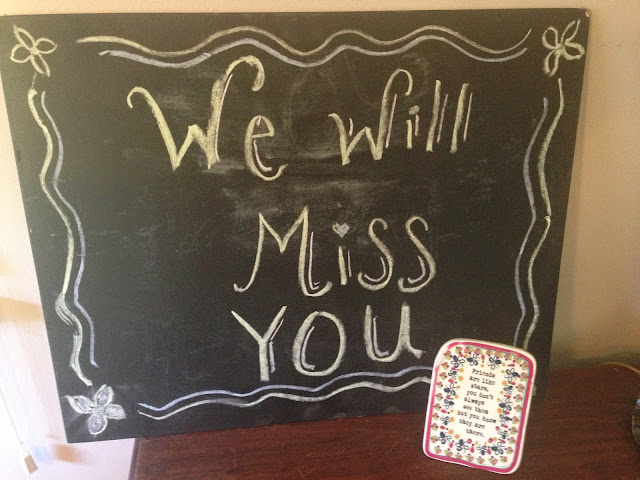 We will
Miss
YOU
Friends
are like
stars,
you don't
always
see them
but you know
they are
there.